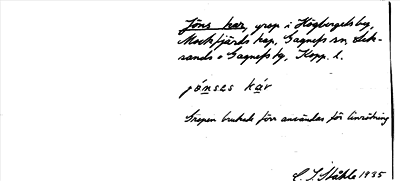 Jöns kar, grop i Högbergets by,
Mockfjärds kap, Gagnefs sn, Lek-
sands o Gagnefs tg, Kopp. l.
jónses kár
Gropen brukade förr användas för linrötning
C. I. Ståhle 1935